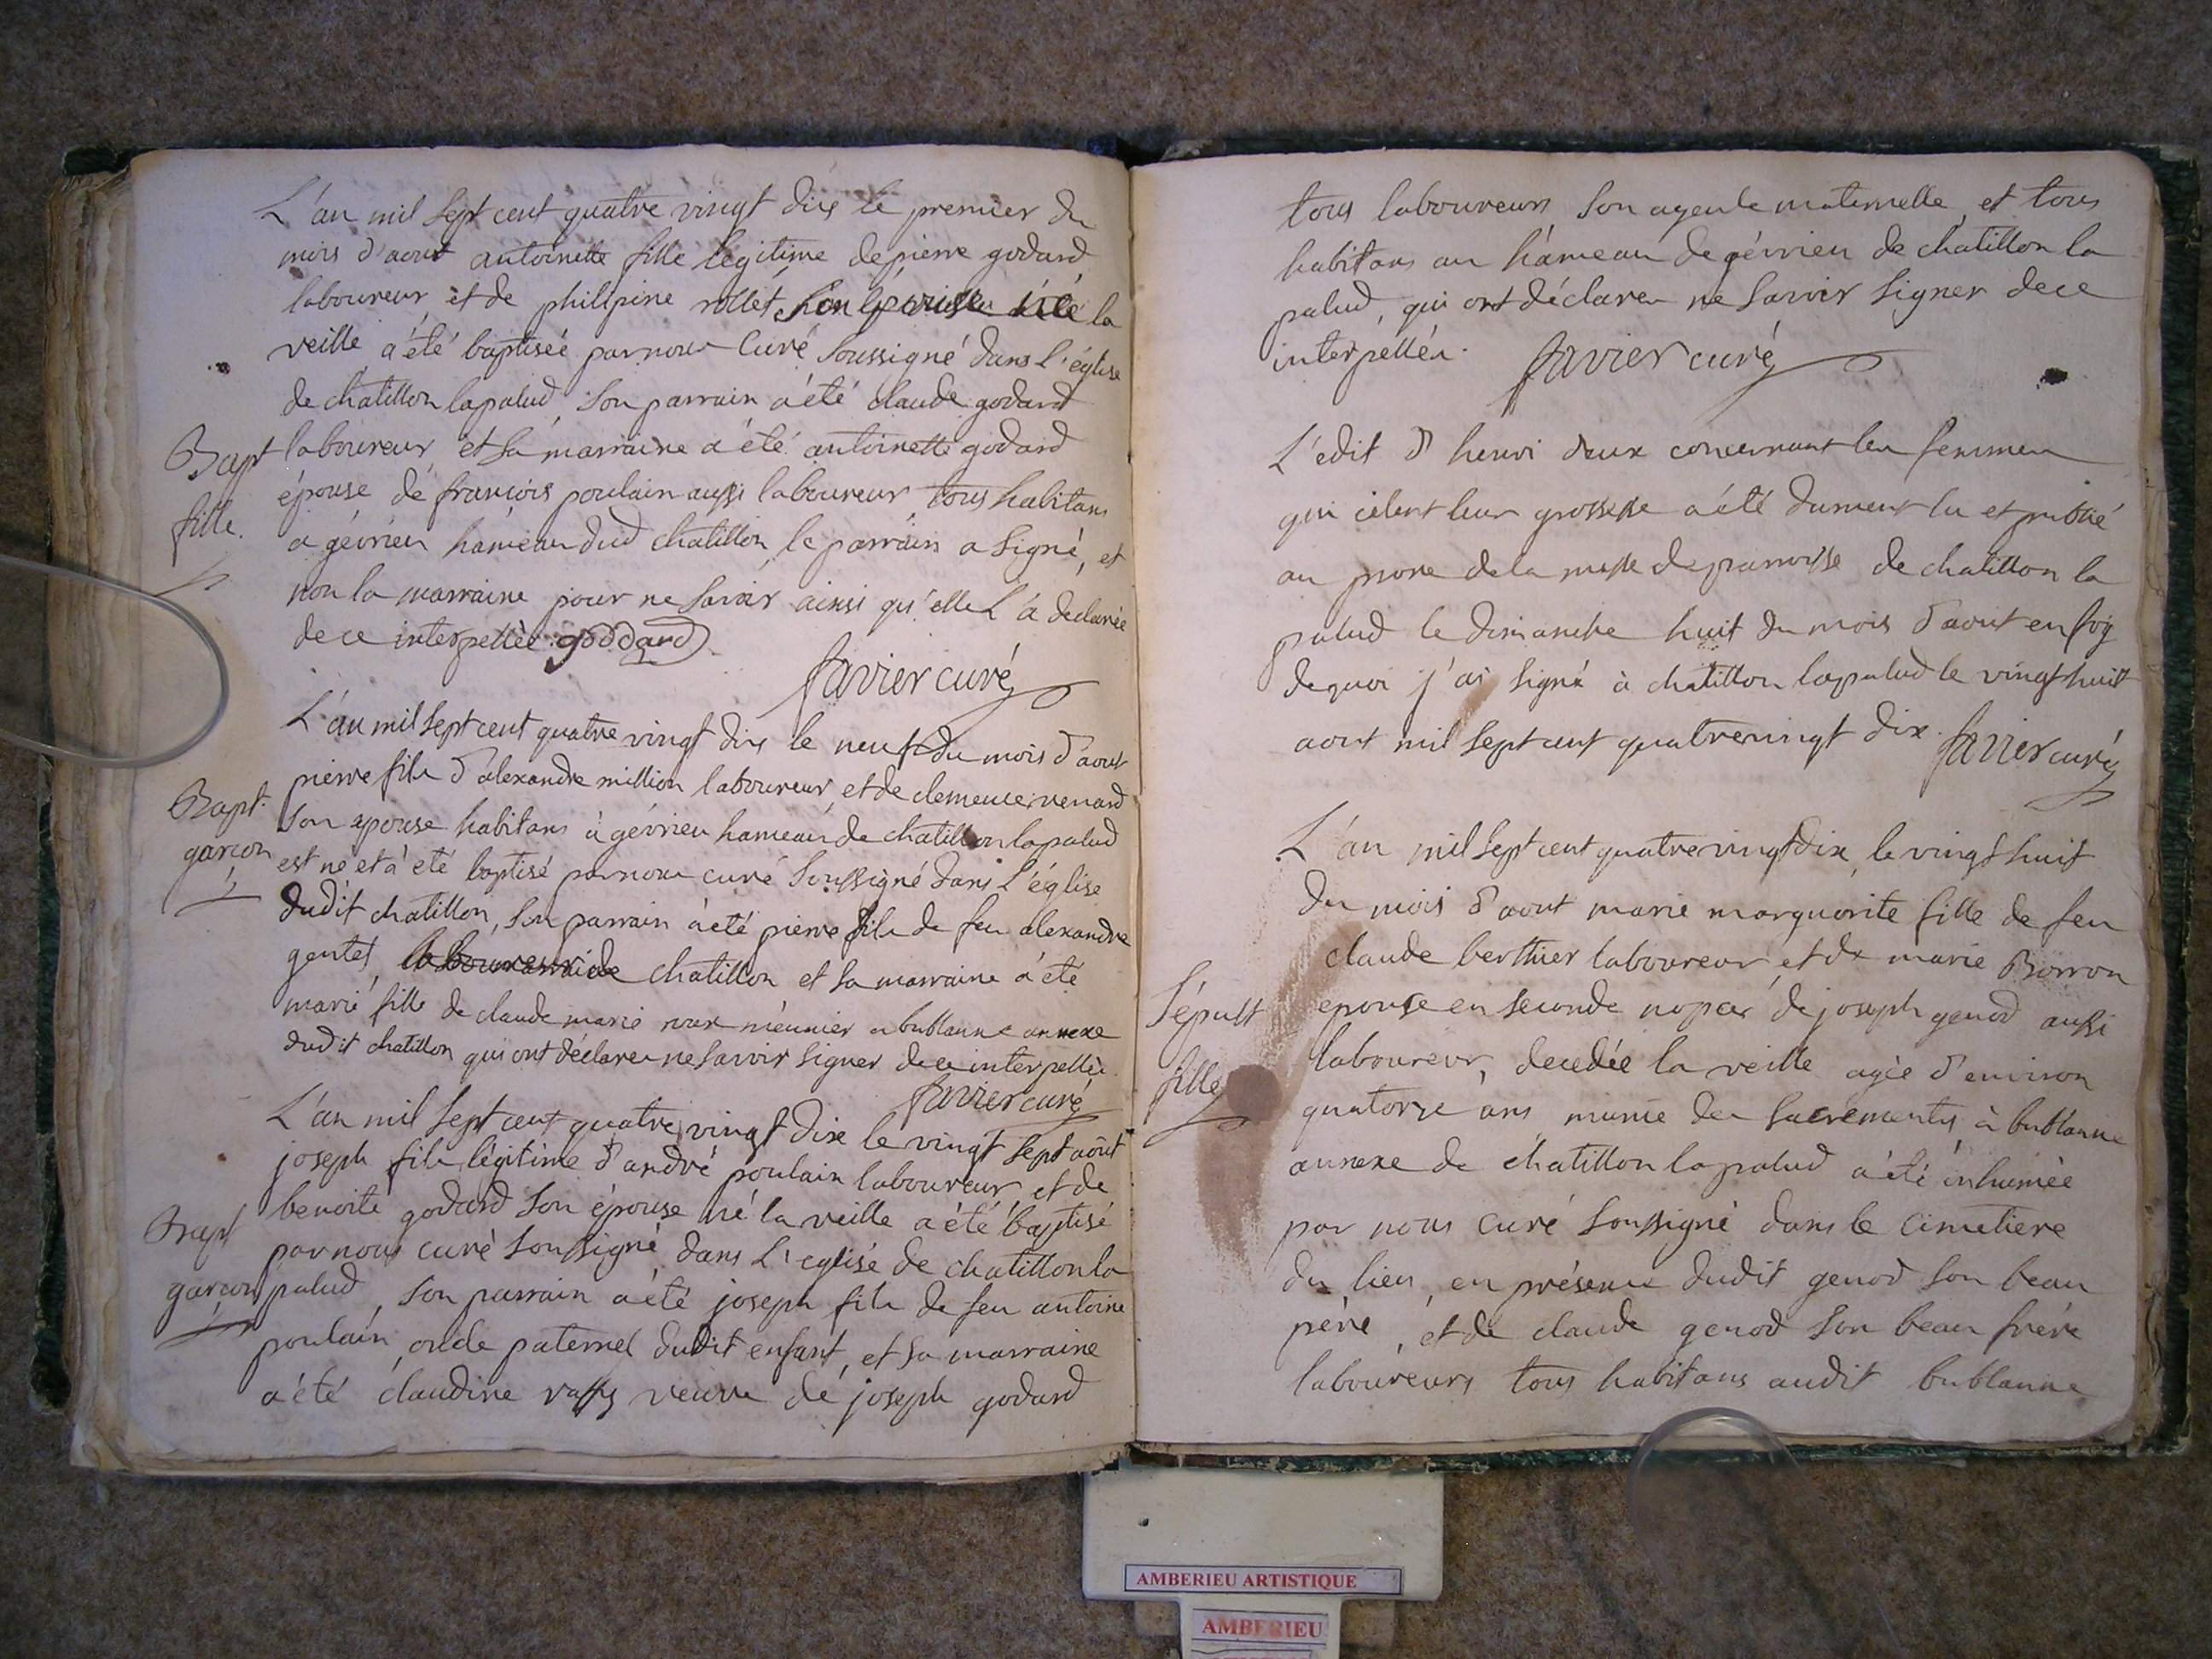 L'an mil sept cent quatre vingt dix le premier du
mois d'aout antoinette fille legitime de pierre godard
laboureur et de philipine rollet son épouse née la
veille a été baptisée par nous curé soussigné dans l'église
de chatillon lapalud, son parrain a été claude godard
laboureur et sa marraine a été antoinette godard
épouse de françois poulain aussi laboureur tous habitans
a gévrieu hameau dud chatillon, le parrain a signé, et
non la marraine pour ne savoir ainsi qu'elle l'a declarée
de ce interpellée goddard
favier curé
Bapt
fille.
L'an mil sept cent quatre vingt dix le neuf du mois d'aout
pierre fils d'alexandre million laboureur, et de clemence renard
son epouse habitans à gévrieu hameau de chatillon lapalud
est né et a été baptisé par nous curé soussigné dans l'église
dudit chatillon, son parrain a été pierre fils de feu alexandre
gentet, chatillon et sa marraine a été
marie fille de claude marie roux meunier a bublanne annexe
dudit chatillon qui ont déclarer ne savoir signer de ce interpellée
favier curé
Bapt
garçon
L'an mil sept cent quatre vingt dix le vingt sept aôut
joseph fils légitime d'andré poulain laboureur, et de
benoite godard son épouse né la veille a été baptisé
par nous curé soussigné dans l'eglise de chatillon la
palud, son parrain a été joseph fils de feu antoine
poulain, oncle paternel dudit enfant, et sa marraine
a été claudine veuve de joseph godard
Bapt
garçon
tous laboureurs son ayeule maternelle, et tous
habitans au hameau de gévrieu de chatillon la
palud, qui ont déclarer ne savoir signer de ce
interpellés. favier curé
L'edit d'henri deux concernant les femmes
qui celent leur grossesse a été dument lu et publié
au prone de la messe de parroisse de chatillon la
palud le dimanche huit du mois d'aout en foy
de quoi j'ai signé à chatillon lapalud le vingt huit
aout mil sept cent quatre vingt dix. favier curé
L'an mil sept cent quatre vingt dix, le vingt huit
du mois d'aout marie marguerite fille de feu
claude berthier laboureur et de marie Borron
epouse en seconde nopces de joseph genod aussi
laboureur, decedée la veille agée d'environ
quatorze ans munie des sacrements, à bublanne
annexe de chatillon lapalud a été inhumée
par nous curé soussigné dans le cimetiere
du lieu, en présence dudit genod son beau
père, et de claude genod son beau frére
laboureurs tous habitans audit bublanne
Sépult
fille
AMBERIEU ARTISTIQUE
AMBERIEU